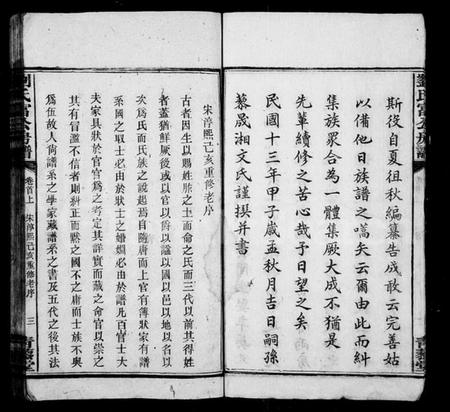 斯役自夏徂秋編纂告成敢云完善姑
以備他日族譜之嚆矢云爾由此而糾
集族眾合為一體集厥大成不猶是
先輩續修之苦心哉予日望之矣
民國十三年甲子歲孟秋月吉日嗣孫
藜晟湘文氏謹撰并書
劉氏富公房譜
宋淳熙己亥重修老序
古者因生以賜姓胙之土而命之氏而三代以前其得姓
者蓋猶鮮厥後或以官以爵以諡以國以邑以地以名以
次為氏而氏族之說起焉自隋唐而上官有薄狀家有譜
系國之取士必由於狀士之婚姻必由於譜凡百官士大
夫家具狀於官官為之考定其詳實而藏之命官以崇之
其有冒濫不信者則糾正而黜之國不之庸而士族不與
為伍故人尚譜系之學家藏譜系之書及五代之後其法
劉氏富公房譜
卷首上 宋淳熙己亥重修老序
三
青藜堂